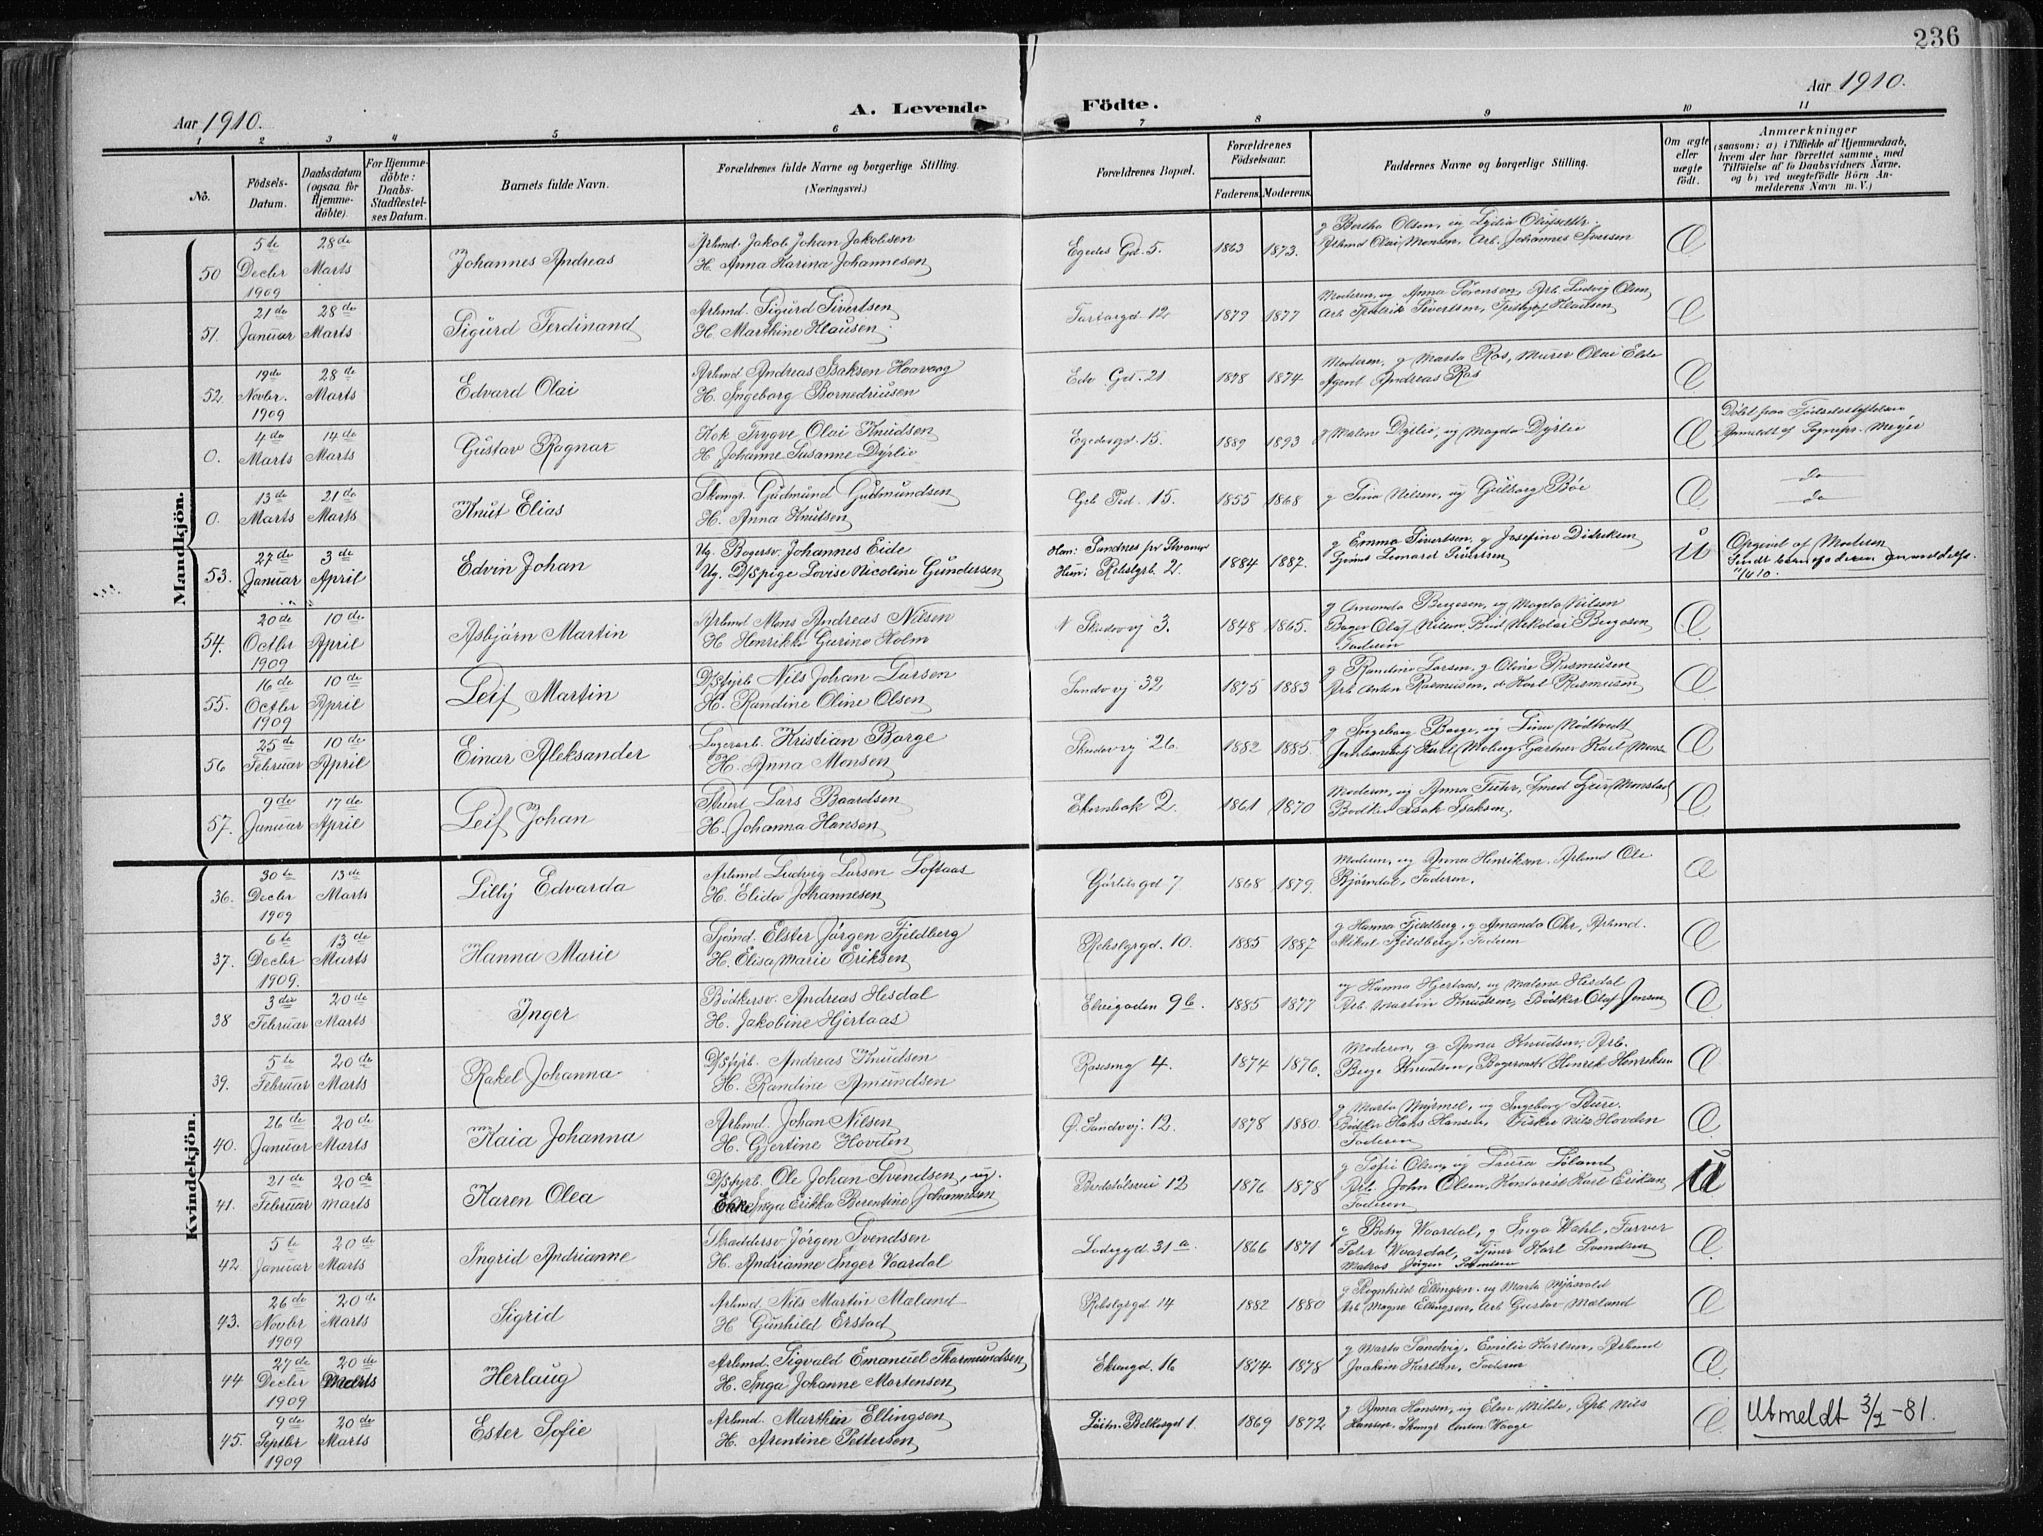 236
Aar 1910.
A. Levende Födte.
Aar 1910.
1 2 3 4 5 6 7 8 9 10 11
No.
Födsels-Datum.
Daabsdatum (ogsaa for Hjemmedöbte).
For Hjemmedöbte: Daabs-Stadfæstelses Datum.
Barnets fulde Navn.
Forældrenes fulde Navne og borgerlige Stilling. (Næringsvei.)
Forældrenes Bopæl.
Forældrenes Födselsaar.
Faderens. Moderens.
Faddernes Navne og borgerlige Stilling.
Om ægte eller uægte födt.
Anmærkninger (saasom: a) i Tilfælde af Hjemmedaab, hvem der har forrettet samme, med Tilföielse af to Daabsvidners Navne. og b) ved uægtefödte Börn Anmelderens Navn m. V.)
Mandkjön.
50 5te Decbr 1909 28de Marts Johannes Andreas Arbmd. Jakob Johan Jakobsen
H. Anna Karina Johannesen Egedes Gd. 5. 1863 1873. g Bertha Olsen, ug Lydia
Arbmd Olai Monsen, Arb. Johannes Iversen Æ
51. 21de Januar 28de Marts Sigurd Ferdinand Arbmd. Sigurd Sivertsen
H. Marthine Klausen 12 1879 1877 Moderen, ug Anna Sörensen, Arb. Ludvig Olsen
Arb. Fredrik Sivertsen, Klausen Æ
52 19de Novbr. 1909 28de Marts Edvard Olai Arbmd Andreas Isaksen Haavaag
H. Ingeborg Bornedriusen 21 1878 1874 Moderen, g Marta Ros, Murer Olai
Agent Andreas Ros Æ
0. 4de Marts 14de Marts Gustav Ragnar Kok Trygve Olai Knudsen
H Johanne Susanne Dyrlie Egedesgd. 15. 1889 1893 g Malene Dyrlie, ug Magda Dyrlie Æ Döbt paa Födselsstiftelsen
Anmeldt af Sognepr. Meyer
0. 13de Marts 21de Marts Knut Elias Skomgr. Gudmund Gudmundsen
H. Anna Knutsen 15. 1855 1868 g Tina Nilsen, ug Gulborg Böe Æ do
do
53. 27de Januar 3de April Edvin Johan Ug. Bagersv. Johannes Eide
Ug. D/Spige Lovise Nicoline Gundersen Han: Sandnes pr Stvanger
Hun: Rebslgrb. 2. 1884 1887. g Emma Sivertsen, g Josefine Didriksen
Lenard Sivertsen U Opgivet af Moderen
54. 20de Octbr 1909 10de April Asbjörn Martin Arbmd Mons Andreas Nilsen
H Henrikke Gurine Holm N Skudevj 3. 1848 1865. g Amanda Bergesen, ug Magda Nilsen
Bager Olaf Nilsen, Nikolai Bergesen
Faderen Æ
55. 16de Octbr 1909 10de April Leif Martin D/Sfyrb Nils Johan Larsen
H. Randine Oline Olsen Sandvj 32 1875 1883 g Randine Larsen, g Oline Rasmusen
Arb. Anton Rasmusen, do Karl Rasmusen Æ
56 25de Februar 10de April Einar Aleksander Lagerarb. Kristian Borge
H. Anna Monsen Skudevj 26. 1882 1885. g Ingeborg Borge, ug Tina Nödtvedt
Karl Moberg, Gartner Karl Æ
57. 9de Januar 17de April Leif Johan Stuert Lars Baardsen
H. Johanna Hansen Ekornbak 2. 1861 1870 Moderen, ug Anna Smed
Bödker Isak Isaksen Æ
Kvindekjön.
36. 30te Decbr 1909 13de Marts Lilly Edvarda Arbmd Ludvig Larsen Loftaas
H. Elida Johannesen 7 1868 1879. Moderen, ug Anna Henriksen. Arbmd Ole
Bjöndal, Faderen. Æ
37. 6te Decbr 1909. 13de Marts Hanna Marie Sjömd. Elster Jörgen Fjeldberg
H. Elisa Marie Eriksen Rebslgrgd. 10. 1885 1887 g Hanna Fjeldberg, g Amanda Ohr, Arbmd.
Mikal Fjeldberg, Faderen Æ
38 3die Februar 20de Marts Inger Bödkersv. Andreas Hesdal
H. Jakobine Hjertaas Elvegaden 9b. 1885 1877 ug Hanna Hjertaas, ug Malene Hesdal
Arb. Martin Knudsen, Bödker Olaf Jensen Æ
39. 5te Februar 20de Marts Rakel Johanna D/Sfyrb. Andreas Knudsen
H. Randine Amundsen Rosesmg 4. 1874 1876. Moderen, g Anna Knudsen, Arb.
Berge Knudsen, Henrik Henriksen Æ
40. 26de Januar 20de Marts Kaia Johanna Arbmd. Johan Nilsen
H. Gjertine Hovden Ö. Sandvj. 12. 1878 1880. g Marta Myrmel, ug Ingeborg
Bödker Hans Hansen, Fisker Nils Hovden
Faderen Æ
41. 21de Februar 20de Marts Karen Olea D/Sfyrb. Ole Johan Svendsen, ug.
Enke Inga Erikka Berentine Johannesen 12 1876 1878 g Sofie Olsen, ug Laura
Arb. John Olsen, Kontorist Karl
Faderen U
42 5te Januar 20de Marts Ingrid Andrianne Skræddersv. Jörgen Svendsen
H. Andrianne Inger Vaardal Ladegd. 31a. 1866 1871 g Betsy Vaardal, g Inga Wahl, Farver
Peter Vaardal, Karl Svendsen
Matros Jörgen Æ
43. 26de Novbr 1909 20de Marts Sigrid Arbmd Nils Martin Mæland
H Gunhild Erstad Rebslgrgd 14 1882 1880 g Ragnhild Ellingsen, ug Marta
Arb Magne Ellingsen, Arb Gustav Mæland Æ
44 27de Decbr 1909 20de Marts Herlaug Arbmd. Sigvald Emanuel Thormundsen
H. Inga Johanne Mortensen 16 1874 1878 g Marta Sandvig, Emilie Karlsen, Arbmd
Joakim Karlsen, Faderen Æ
45. 9de Septbr 1909 20de Marts Ester Sofie Arbmd. Marthin Ellingsen
H. Arentine Pettersen 1 1869 1872 g Anna Hansen, ug Elen Milde, Arb Nils
Hansen, Anton Waage Æ Utmeldt 3/2 -81.